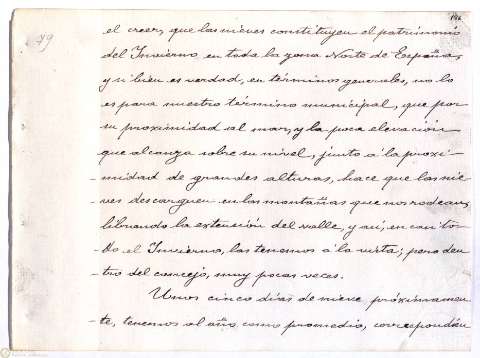 146
79
el creer, que las nieves constituyen el patrimonio
del Invierno en toda la zona Norte de España,
y si bien es verdad, en términos generales, no lo
es para nuestro término municipal, que por
su proximidad al mar, y la poca elevación
que alcanza sobre su nivel, junto á la proxi-
-midad de grandes alturas, hace que las nie-
-ves descarguen en las montañas que nos rodean,
librando la extensión del valle, y así, en casi to-
-do el Invierno, las tenemos á la vista; pero den-
-tro del concejo, muy pocas veces.
Unos cinco días de nieve próximamen-
-te, tenemos al año como promedio, correspondien